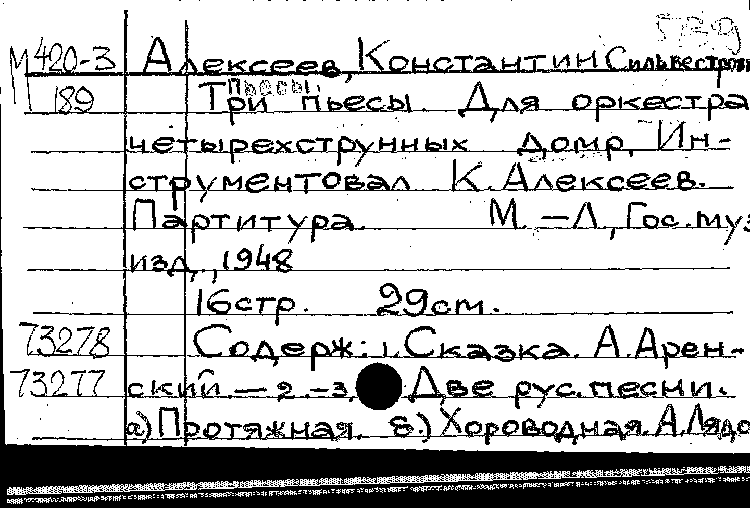 5739
М420-3 Алексеев, Константин Сильвестров
Пьесы.
189 Три пьесы. Для оркестра
четырехструнных домр. Ин-
струментовал К. Алексеев.
Партитура. М.–Л., Гос. муз
изд., 1948
16 стр. 29 см.
73278 Содерж: 1. Сказка. А. Арен-
73277 ский – 2.–3. Две рус. песни.
а) Протяжная. б.) Хороводная. А. Лядо